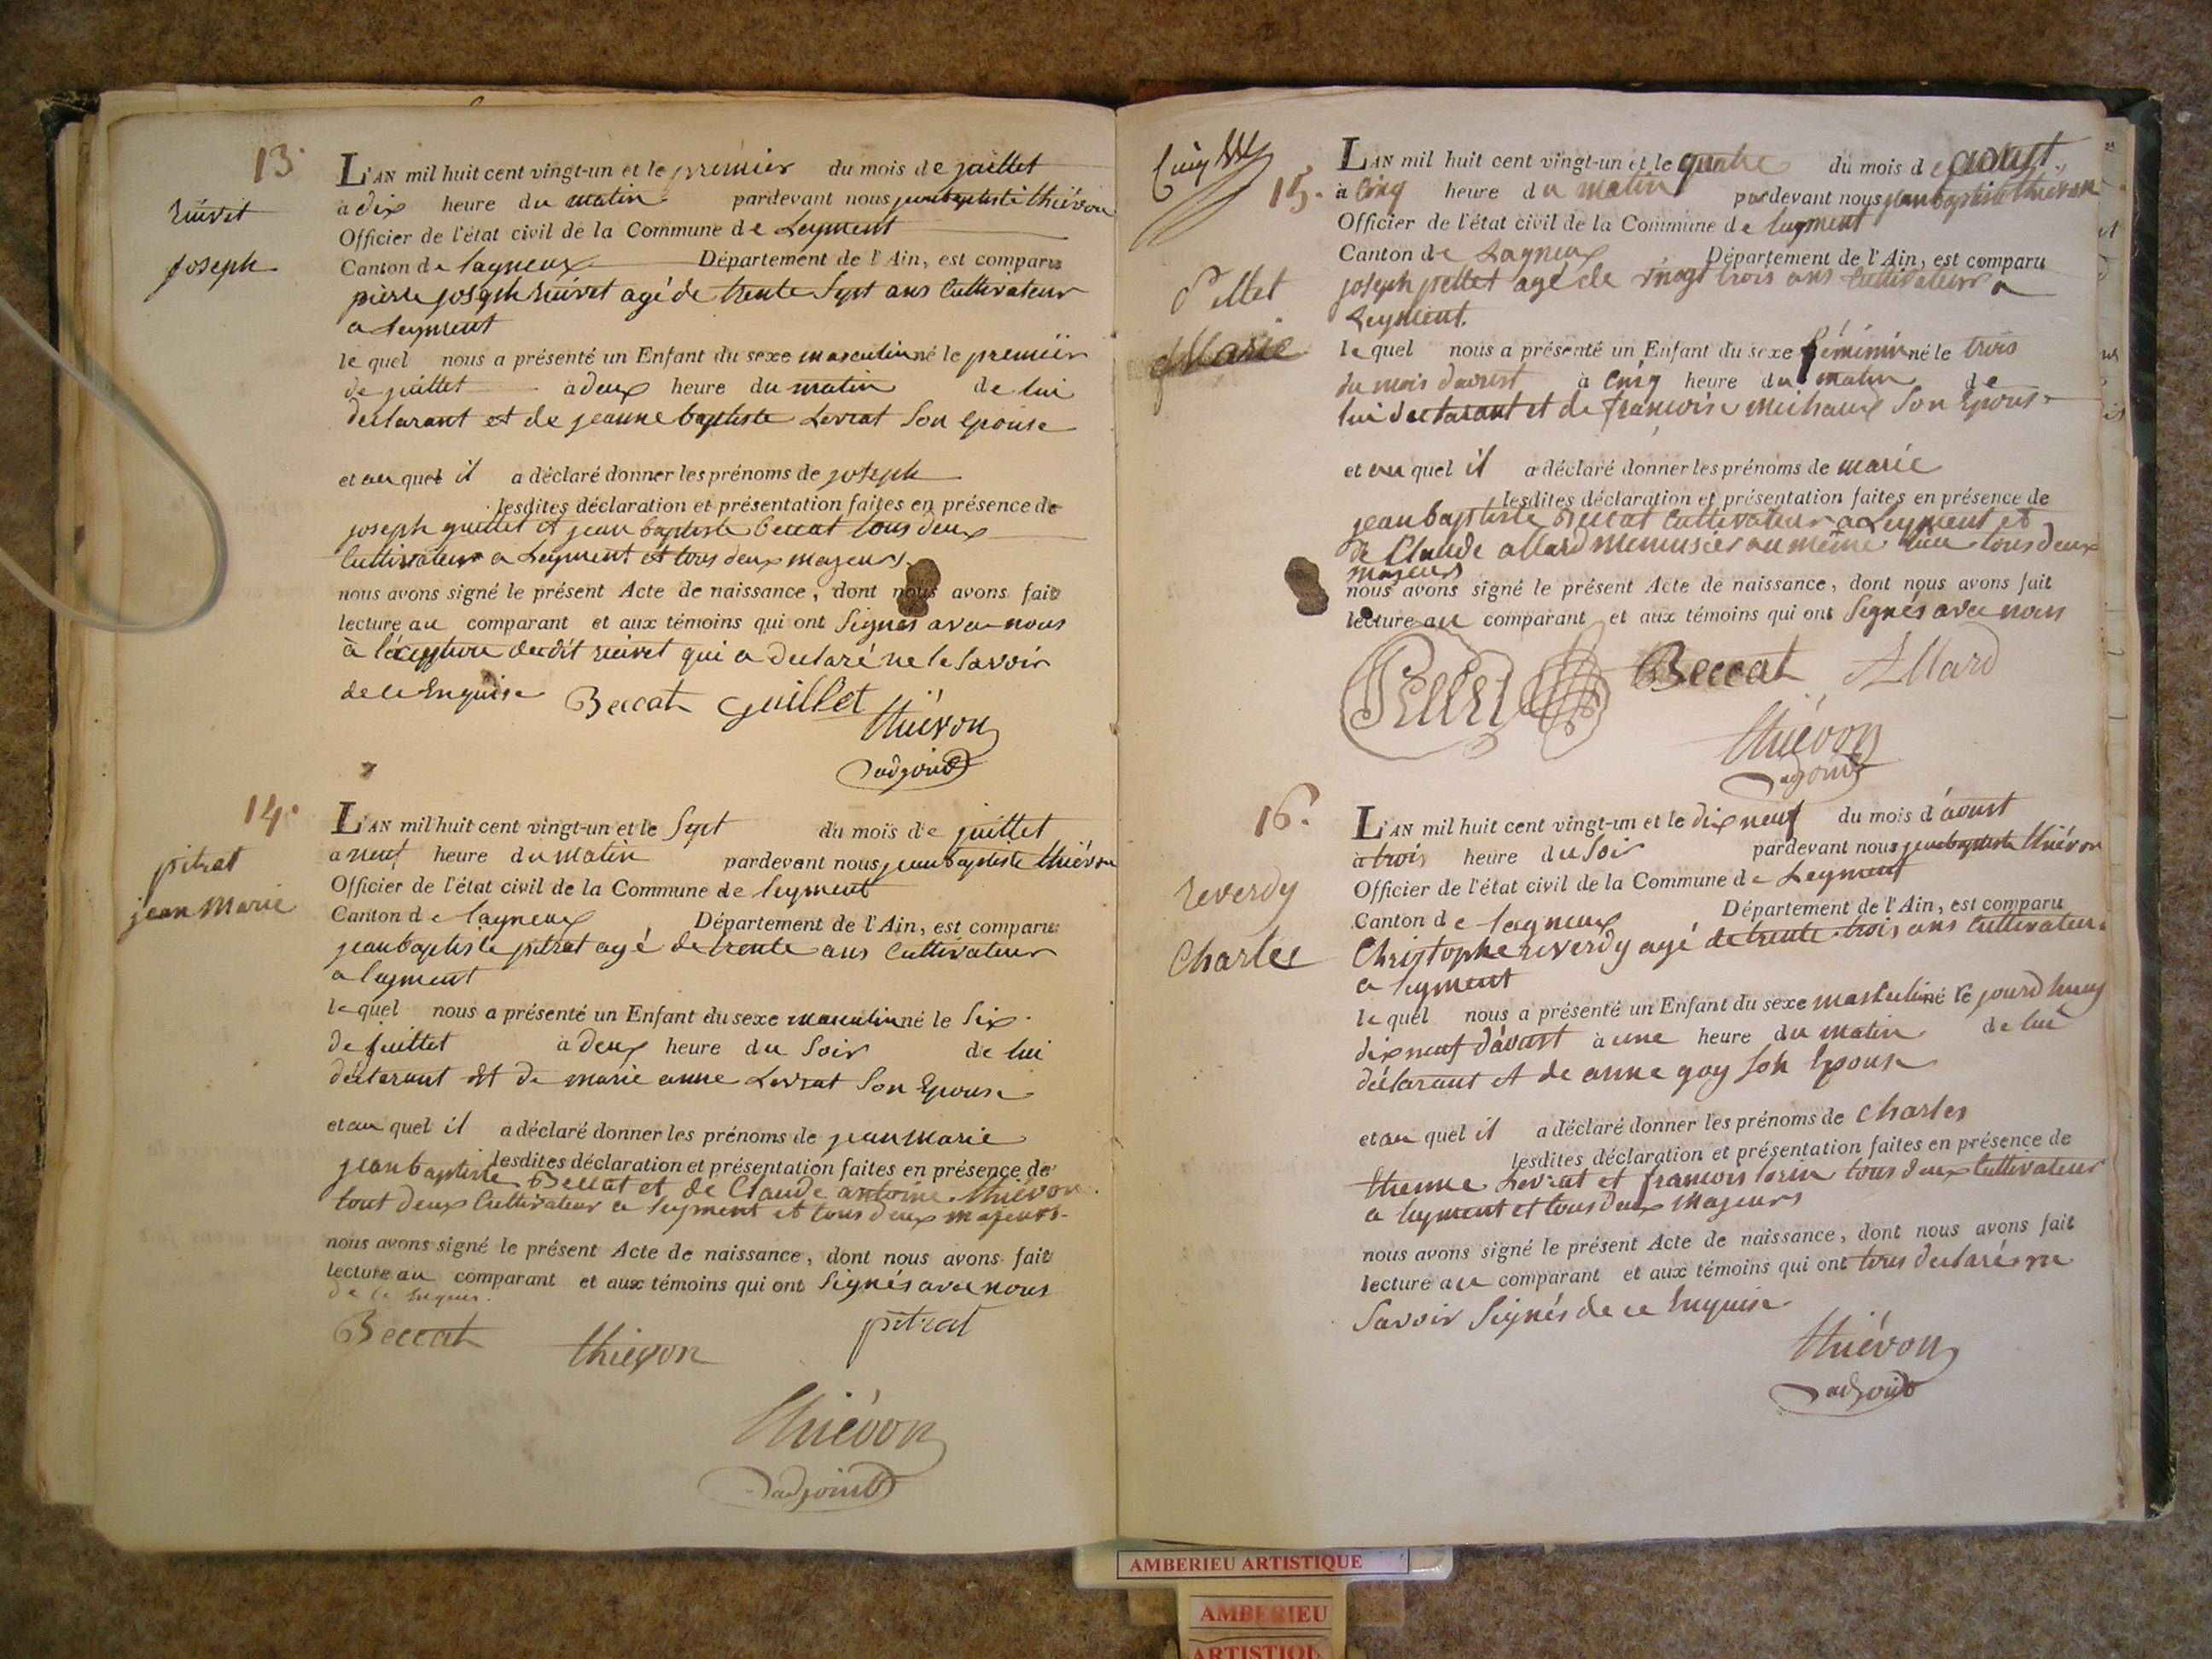 13.
ruivet
Joseph
L'AN mil huit cent vingt-un et le premier du mois de juillet
à dix heure du matin pardevant nous jean baptiste thiévon
Officier de l'état civil de la Commune de Leyment
Canton de lagneux Département de l'Ain, est comparu
pierre joseph ruivet agé de trente Sept ans Cultivateur
a Leyment
le quel nous a présenté un Enfant du sexe masculin né le premier
de juillet à deux heure du matin de lui
declarant et de jeanne baptiste Levrat Son epouse
et au quel il a déclaré donner les prénoms de joseph
lesdites déclaration et présentation faites en présence de
joseph guillet et jean baptiste Beccat tous deux
Cultivateur a Leyment et tous deux majeurs.
nous avons signé le présent Acte de naissance, dont nous avons fait
lecture au comparant et aux témoins qui ont Signés avec nous
à l'éxception dudit ruivet qui a declaré ne le Savoir
de ce Enquise Beccat guillet
thiévon
adjoint
14.
pitrat
jean Marie
L'AN mil huit cent vingt-un et le Sept du mois de juillet
a neuf heure du matin pardevant nous jean baptiste thiévon
Officier de l'état civil de la Commune de leyment
Canton de lagneux Département de l'Ain, est comparu
jean baptiste pitrat agé de trente ans Cultivateur
a leyment
le quel nous a présenté un Enfant du sexe masculin né le Six
de juillet à deux heure du Soir de lui
déclarant et de marie anne Levrat Son Epouse
et au quel il a déclaré donner les prénoms de jean Marie
lesdites déclaration et présentation faites en présence de
jean baptiste Beccat et de Claude antoine thiévon
tout deux Cultivateur a leyment et tous deux majeurs.
nous avons signé le présent Acte de naissance, dont nous avons fait
lecture au comparant et aux témoins qui ont Signés avec nous
de ce Enquis.
Beccat thievon pitrat
thiévon
adjoint
15.
Pellet
Marie
L'AN mil huit cent vingt-un et le quatre du mois d'aoust
à Cinq heure du matin pardevant nous jean baptiste thiévon
Officier de l'état civil de la Commune de leyment
Canton de Lagneux Département de l'Ain, est comparu
joseph pellet agé de vingt trois ans Cultivateur a
Leyment.
le quel nous a présenté un Enfant du sexe féminin né le trois
du mois daoust à Cinq heure du matin de
lui declarant et de françoise michaux Son Epouse
et au quel il a déclaré donner les prénoms de marie
lesdites déclaration et présentation faites en présence de
jean baptiste Beccat Cultivateur a Leyment et
de Claude allard menusier au même lieu tous deux
majeurs
nous avons signé le présent Acte de naissance, dont nous avons fait
lecture au comparant et aux témoins qui ont Signés avec nous
Pellet Beccat Allard
thiévon
adjoint
16.
reverdy
Charles
L'AN mil huit cent vingt-un et le dix neuf du mois d'aoust
à trois heure du Soir pardevant nous jean baptiste thiévon
Officier de l'état civil de la Commune de Leyment
Canton de lagneux Département de l'Ain, est comparu
Christophe reverdy agé de trente trois ans Cultivateur
a leyment
le quel nous a présenté un Enfant du sexe masculin né le jourd huy
dix neuf d'aoust à une heure du matin de lui
déclarant et de anne goy Son Epouse
et au quel il a déclaré donner les prénoms de Charles
lesdites déclaration et présentation faites en présence de
Etienne Levrat et françois lorin tous deux Cultivateur
a leyment et tous deux majeurs
nous avons signé le présent Acte de naissance, dont nous avons fait
lecture au comparant et aux témoins qui ont tous declarés ne
Savoir Signés de ce Enquise.
thiévon
adjoint
AMBERIEU ARTISTIQUE
AMBERIEU
ARTISTIQU